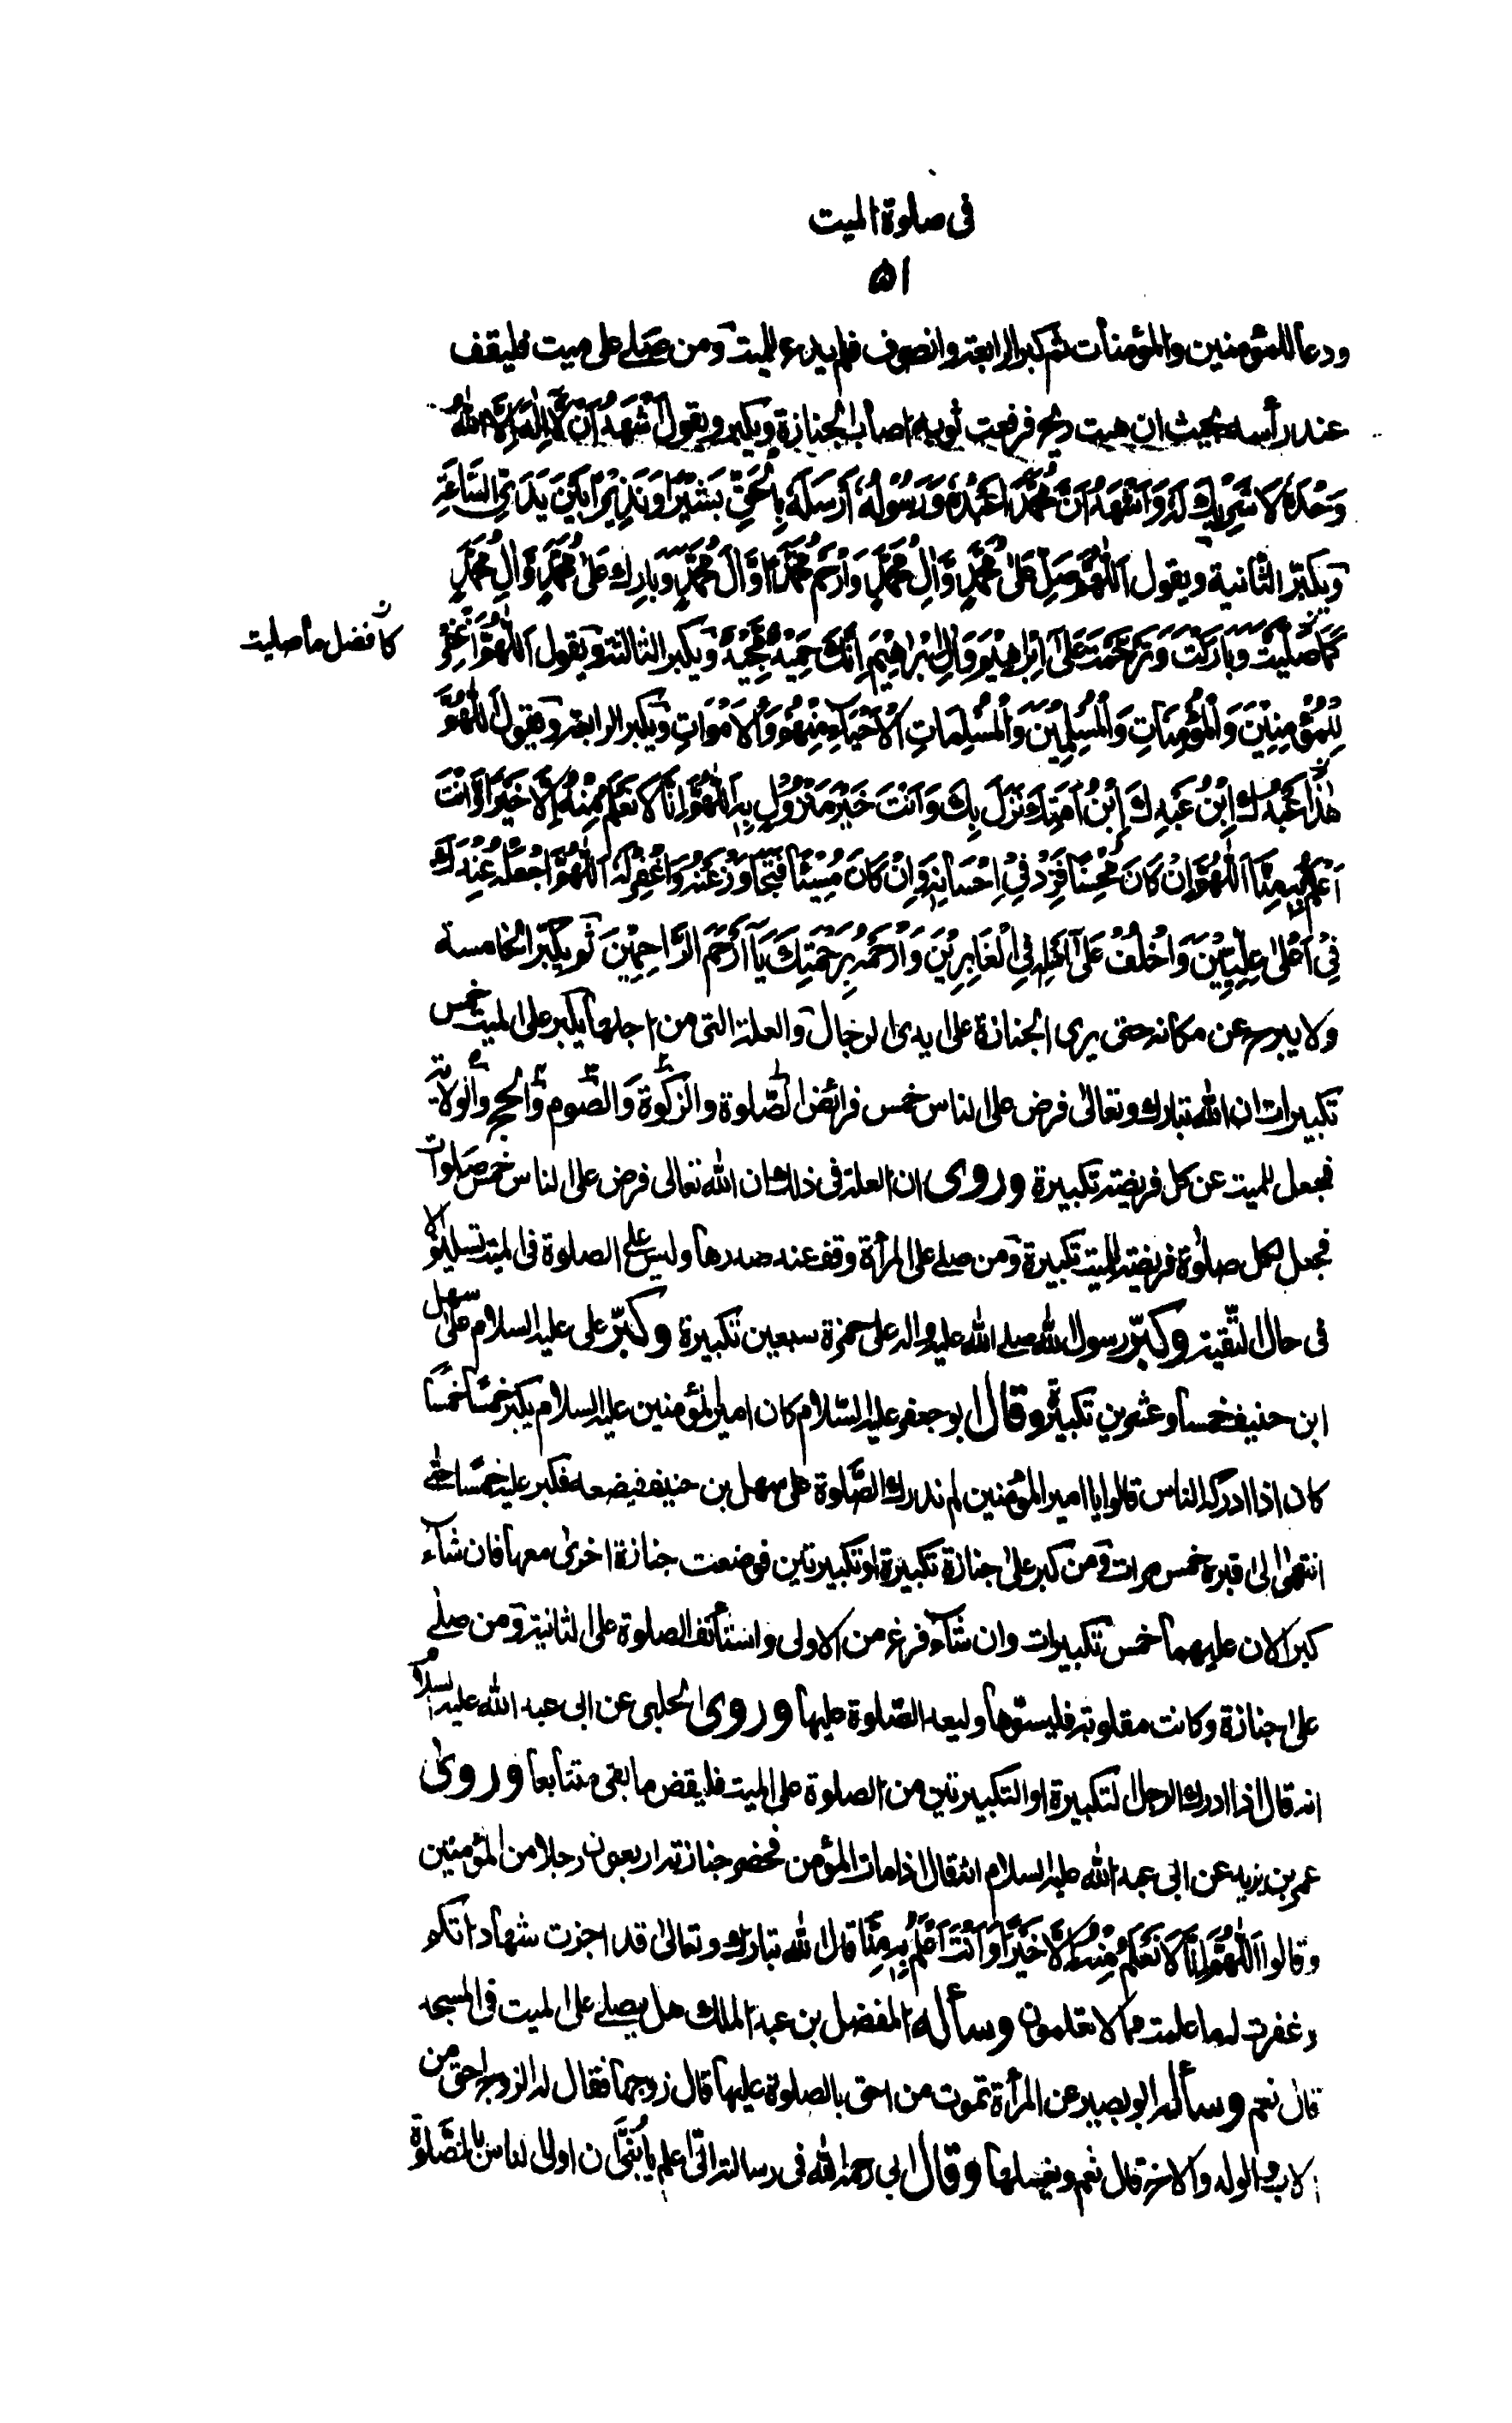 فی صلوة المیت
۵۱
ودعا للمؤمنین والمؤمنات ثم کبر الرابعة وانصرف فلم یدع للمیت ومن صلے علی میت فلیقف
عند رأسه بحیث ان هبت ریح فرفعت ثوبه اصاب الجنازة ویکبر ویقول اَشْهَدُ اَنْ لَا اِلٰهَ اِلَّا اللّٰهُ
وَحْدَهٗ لَا شَرِیْكَ لَهٗ وَاَشْهَدُ اَنَّ مُحَمَّدًا عَبْدُهٗ وَرَسُوْلُهٗ اَرْسَلَهٗ بِالْحَقِّ بَشِیْرًا وَنَذِیْرًا بَیْنَ یَدَیِ السَّاعَةِ
ویکبّر الثانیة ویقول اَللّٰهُمَّ صَلِّ عَلیٰ مُحَمَّدٍ وَّاٰلِ مُحَمَّدٍ وَارْحَمْ مُحَمَّدًا وَّاٰلَ مُحَمَّدٍ وَبَارِكْ عَلیٰ مُحَمَّدٍ وَّاٰلِ مُحَمَّدٍ
کَمَا صَلَّیْتَ وَبَارَکْتَ وَتَرَحَّمْتَ عَلیٰ اِبْرَاهِیْمَ وَاٰلِ اِبْرَاهِیْمَ اِنَّكَ حَمِیْدٌ مَّجِیْدٌ ویکبر الثالثة ویقول اَللّٰهُمَّ اغْفِرْ
کافضل ما صلیت
لِلْمُؤْمِنِیْنَ وَالْمُؤْمِنَاتِ وَالْمُسْلِمِیْنَ وَالْمُسْلِمَاتِ اَلْاَحْیَاءِ مِنْهُمْ وَالْاَمْوَاتِ ویکبر الرابعة ویقول اَللّٰهُمَّ
هٰذَا عَبْدُكَ ابْنُ عَبْدِكَ ابْنُ اَمَتِكَ نَزَلَ بِكَ وَاَنْتَ خَیْرُ مَنْزُوْلٍ بِهٖ اَللّٰهُمَّ اِنَّا لَا نَعْلَمُ مِنْهُ اِلَّا خَیْرًا وَّاَنْتَ
اَعْلَمُ بِهٖ مِنَّا اَللّٰهُمَّ اِنْ کَانَ مُحْسِنًا فَزِدْ فِیْ اِحْسَانِهٖ وَاِنْ کَانَ مُسِیْئًا فَتَجَاوَزْ عَنْهُ وَاغْفِرْ لَهٗ اَللّٰهُمَّ اجْعَلْهُ عِنْدَكَ
فِیْ اَعْلیٰ عِلِّیِّیْنَ وَاخْلُفْ عَلیٰ اَهْلِهٖ فِی الْغَابِرِیْنَ وَارْحَمْهُ بِرَحْمَتِكَ یَا اَرْحَمَ الرَّاحِمِیْنَ ثم یکبّر الخامسة
ولا یبرح عن مکانه حتی یری الجنازة علی ایدی الرجال والعلة التی من اجلها یکبر علی المیت خمس
تکبیرات ان الله تبارك وتعالیٰ فرض علی الناس خمس فرائض الصّلوة والزکوة والصّوم والحج والولایة
فجعل للمیت عن کل فریضة تکبیرة وروی ان العلة فی ذلك ان الله تعالی فرض علی الناس خمس صلوات
فجعل لکل صلوٰة فریضة للمیت تکبیرة ومن صلے علی المرأة وقف عند صدرها ولیس علی الصلوة فی المیت تسلیم الا
فی حال التقیة وکبّر رسول الله صلے الله علیه واله علی حمزة سبعین تکبیرة وکبّر علی علیه السلام علیٰ سهل
ابن حنیف خمسا وعشرین تکبیرة وقال ابو جعفر علیه السّلام کان امیر المؤمنین علیه السلام یکبر خمسًا خمسًا
کان اذا ادرکه الناس قالوا یا امیر المؤمنین لم ندرك الصَّلوة علی سهل بن حنیف فیضعه فکبر علیه خمسًا حتٰے
انتهیٰ الیٰ قبره خمس مرات ومن کبر علیٰ جنازة تکبیرة او تکبیرتین فوضعت جنازة اخریٰ معها فان شآء
کبر الان علیهما خمس تکبیرات وان شآء فرغ من الاولی واستأنف الصلوة علی الثانیة ومن صلے
علیٰ جنازة وکانت مقلوبة فلیسوّها ولیعد الصّلوة علیها وروی الحلبی عن ابی عبد الله علیه السلام
انه قال اذا ادرك الرجل التکبیرة او التکبیرتین من الصلوة علی المیت فلیقض ما بقی متتابعا وروی
عمر بن یزید عن ابی عبد الله علیه السلام انه قال اذا مات المؤمن فحضر جنازته اربعون رجلا من المؤمنین
وقالوا اَللّٰهُمَّ اِنَّا لَا نَعْلَمُ مِنْهُ اِلَّا خَیْرًا وَّاَنْتَ اَعْلَمُ بِهٖ مِنَّا قال الله تبارك وتعالیٰ قد اجزت شهاداتکم
وغفرت له ما علمت مما لا تعلمون وسأله المفضل بن عبد الملك هل یصلے علی المیت فی المسجد
قال نعم وسأله ابو بصیر عن المرأة تموت من احق بالصلوة علیها قال زوجها فقال له الزوج احق من
الاب والولد والاخ قال نعم ویغسلها وقال ابی رحمه الله فی رسالته الیّ اعلم یا بُنَیَّ ان اولی الناس بالصَّلوة